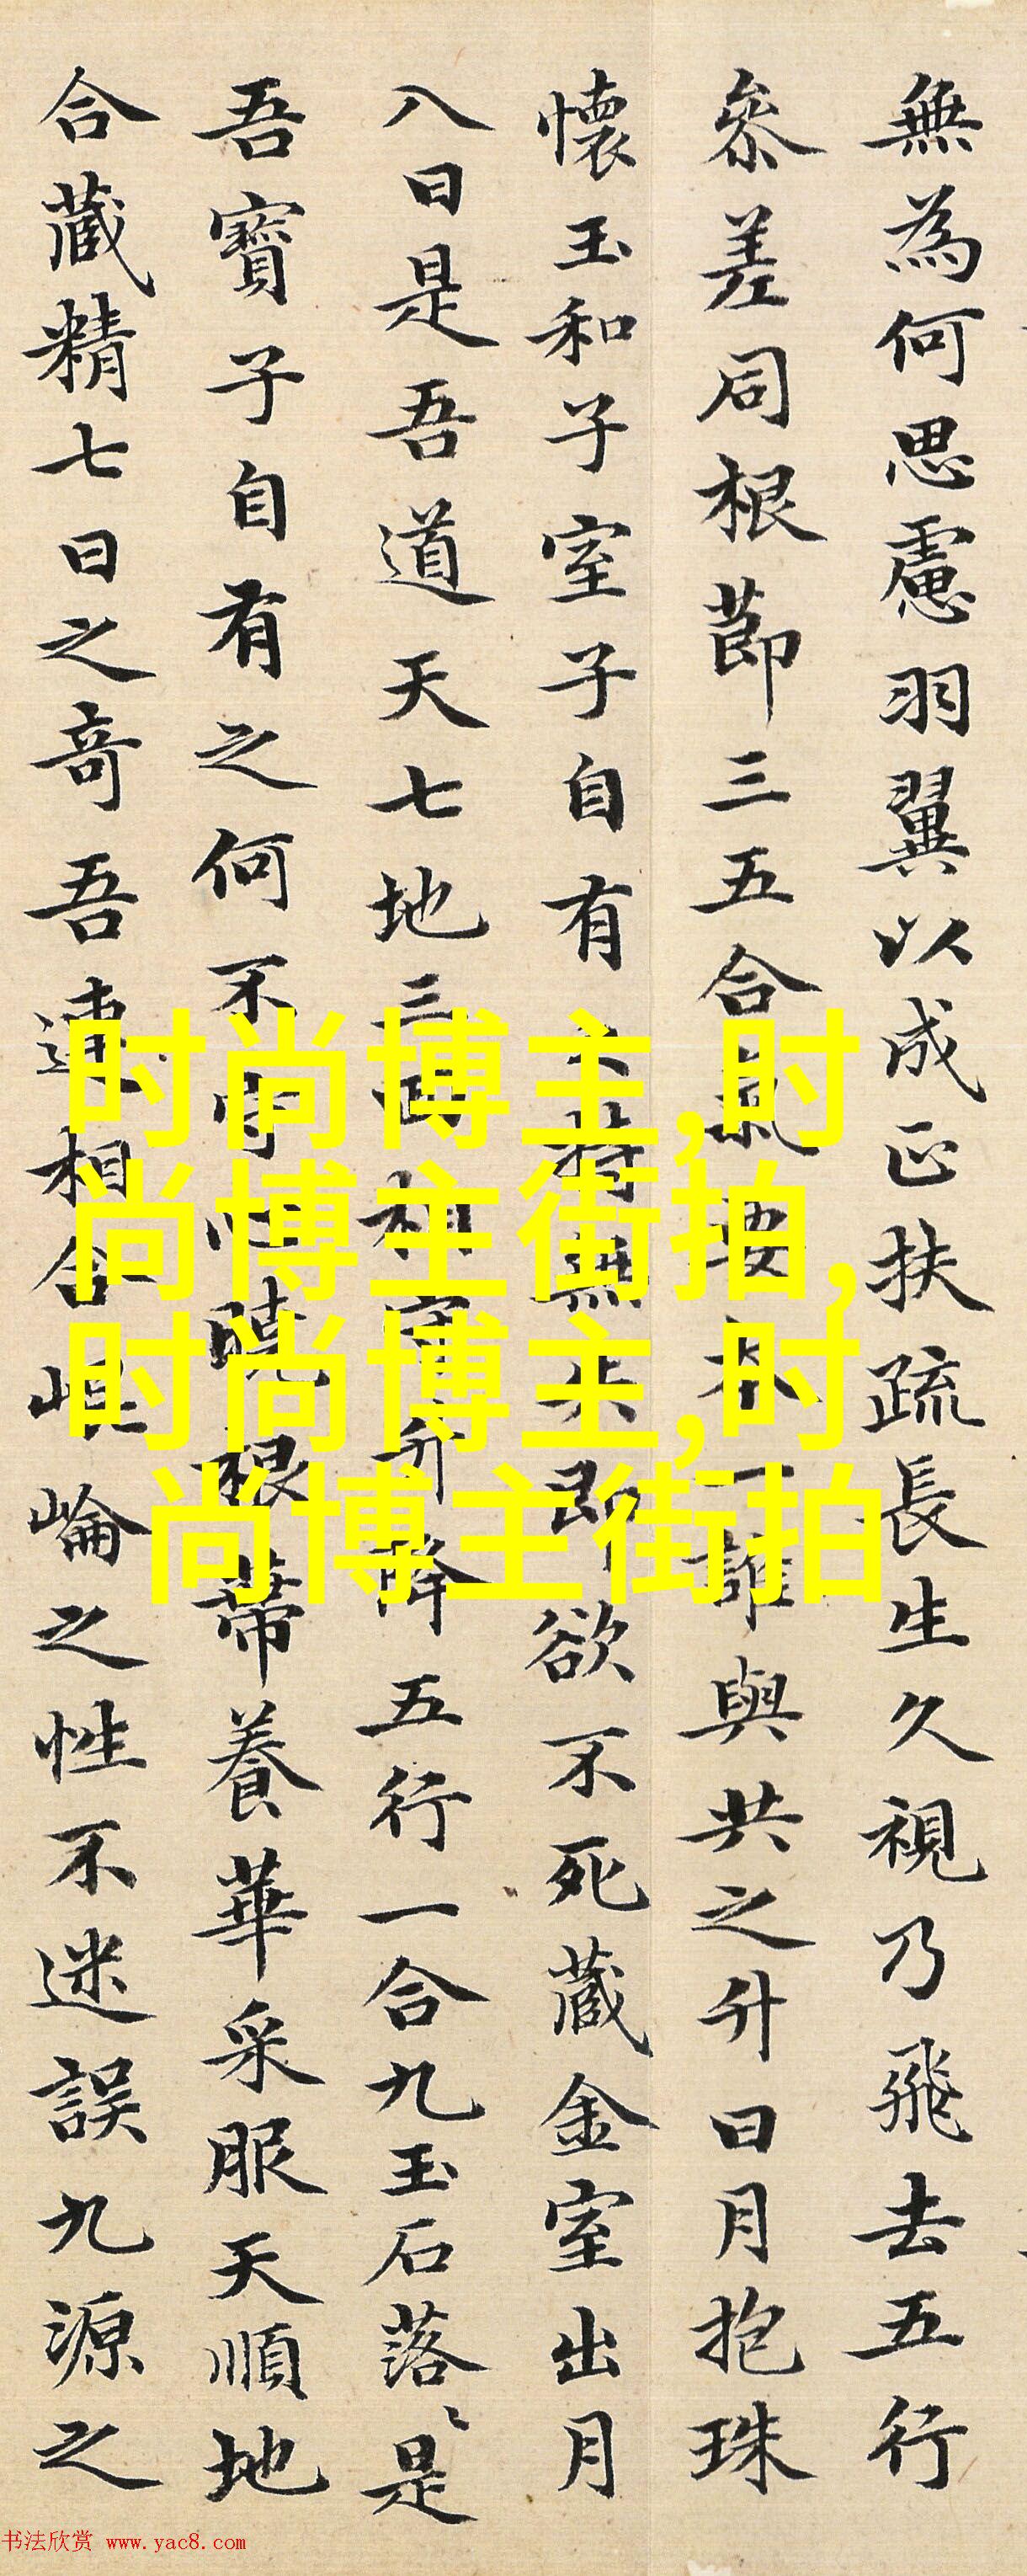 無為何思慮羽翼以成正扶疏長生久視乃飛去五行
參差同根節三五合氣要本一誰與共之升日月抱珠
懷玉和子室子自有之持無失即欲不死藏金室出月
入日是吾道天七地三回相守升降五行一合九玉石落落是
吾寶子自有之何不守心曉根蒂養華采服天順地
合藏精七日之奇吾連相合崐崘之性不迷誤九源之
时尚博主,时
尚博主街拍,
时尚博主,时
尚博主街拍
书法欣赏 www.yac8.com